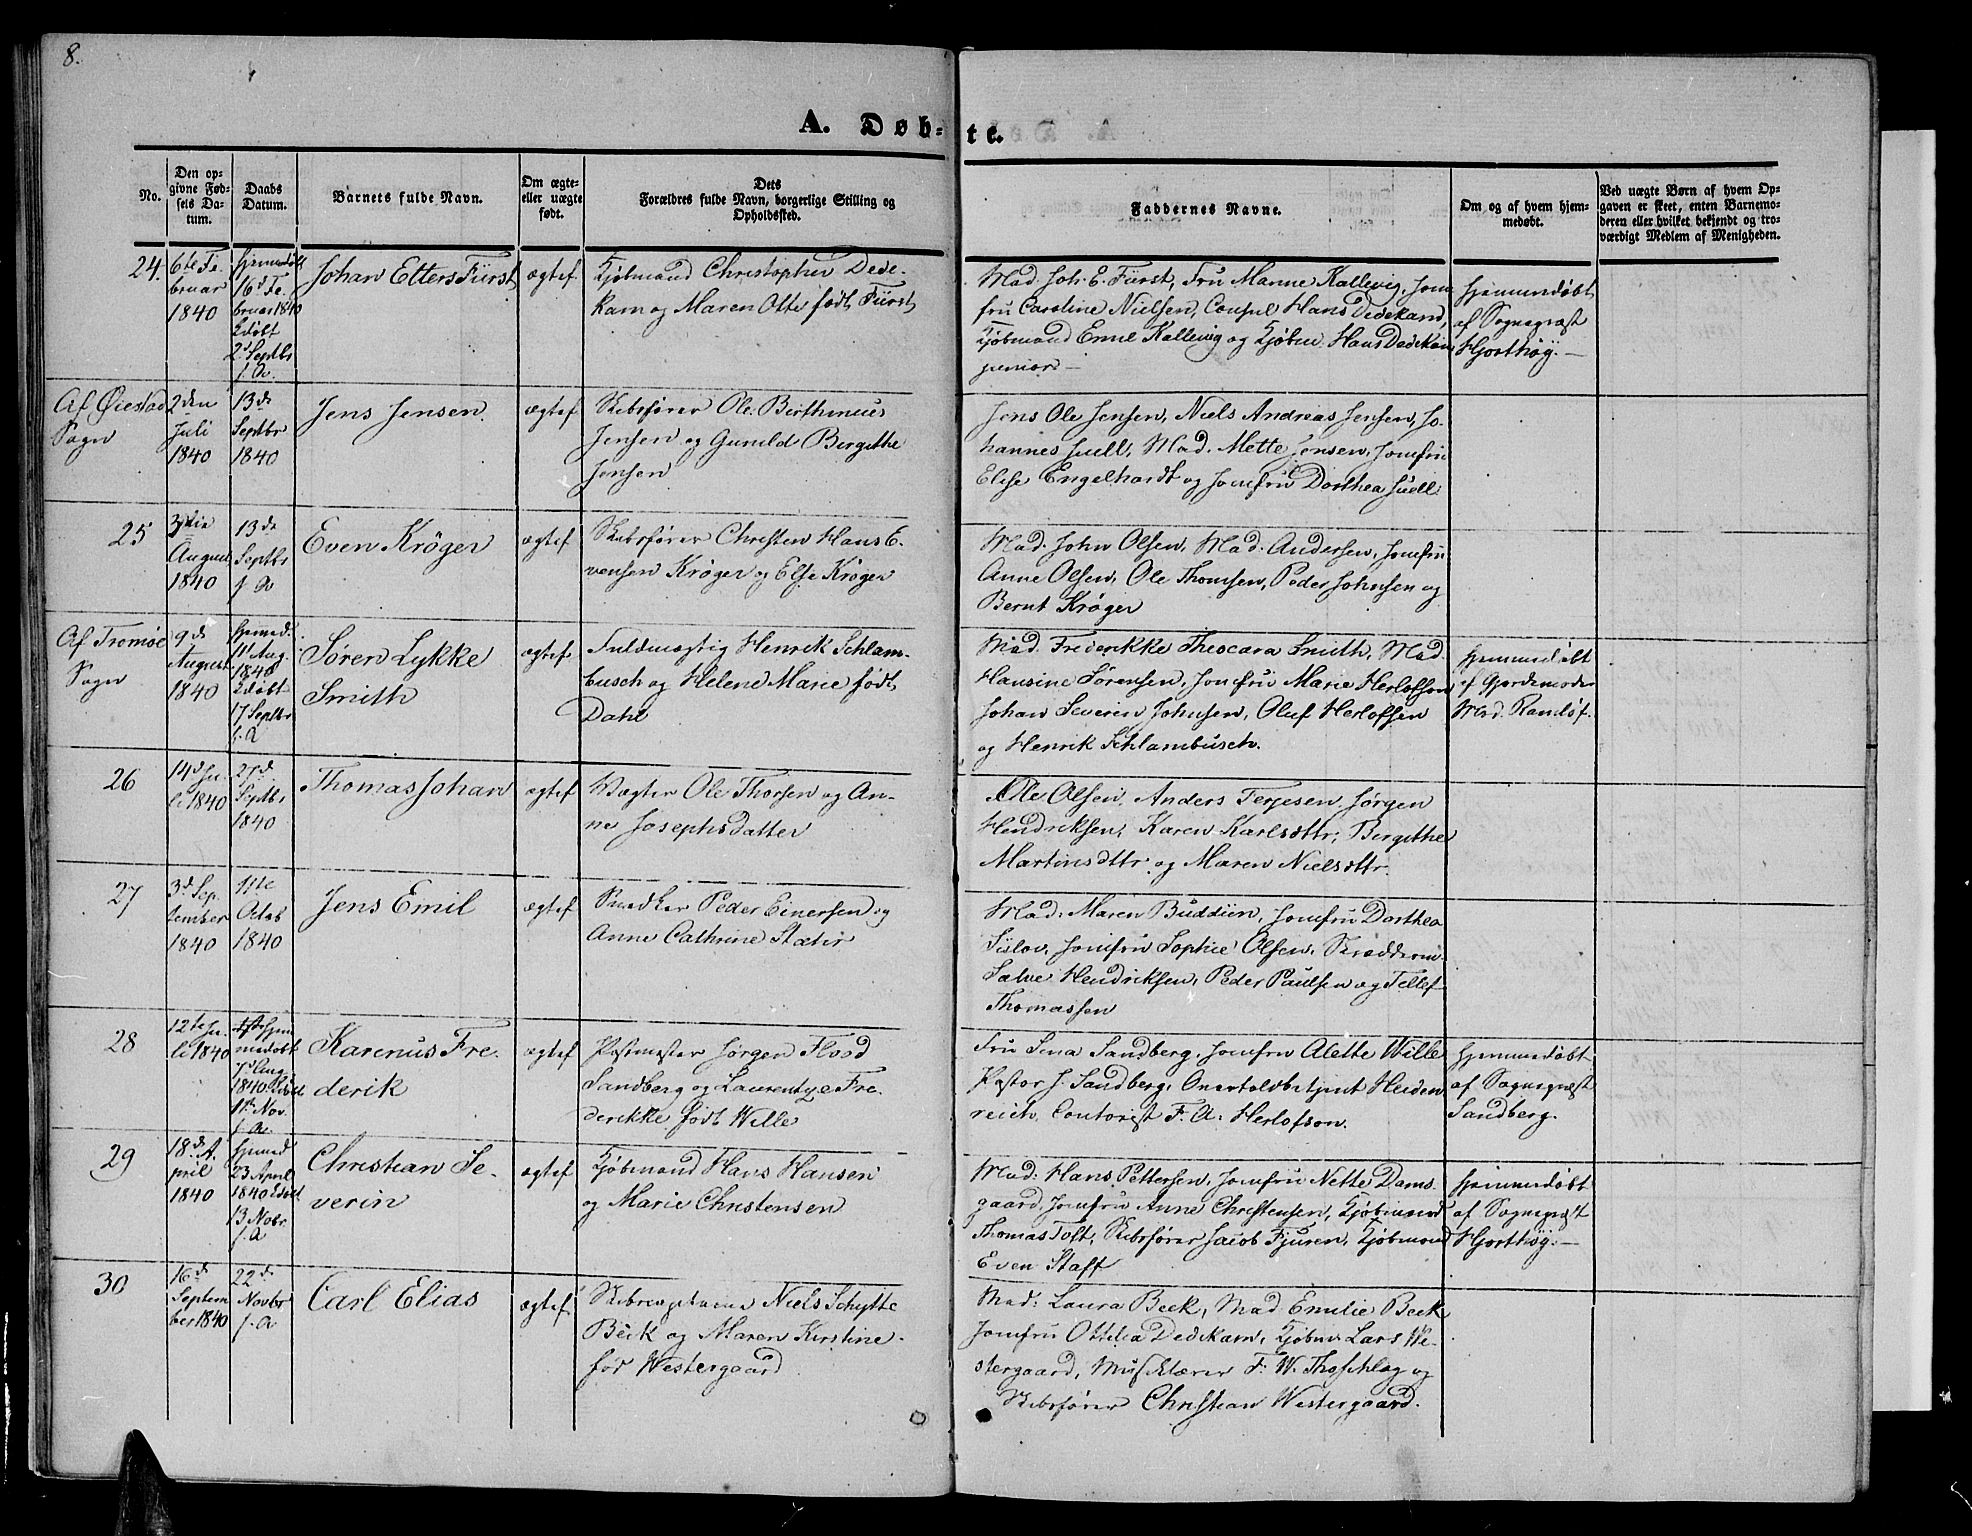 8.
A. Døbte.
No.
Den op-
givne Fød-
sels Da-
tum.
Daabs
Datum.
Barnets fulde Navn.
Om ægte-
eller uægte
født.
Dets
Forældres fulde Navn, borgerlige Stilling og
Opholdssted.
Faddernes Navne.
Om og af hvem hjem-
medøbt.
Ved uægte Børn af hvem Op-
gaven er skeet, enten Barnemo-
deren eller hvilket bekjendt og tro-
værdigt Medlem af Menigheden.
24.
6te Fe-
bruar
1840
Hjemmedøbt
16d Fe-
bruar 1840
Edøbt
2d Septbr
f. A.
Johan Etters Fürst
ægtef
Kjøbmand Christopher Dede-
kam og Maren Otte født Fürst
Mad. Joh. E. Fürst, Fru Manne Kallevig, Jom-
fru Caroline Nielsen, Consul Hans Dedekam,
Kjøbmand Emil Kallevig og Kjøbm. Hans Dedekam
junior –
Hjemmedøbt
af Sognepræst
Hjorthøy. –
Af Øiestad
Sogn
2den
Juli
1840
13de
Septbr
1840
Jens Jensen.
ægtef
Skibsfører Ole Birthinius
Jensen og Gunild Bergithe
Jensen
Jens Ole Jensen, Niels Andreas Jensen, Jo-
hannes Juell, Mad. Mette Jensen, Jomfru
Elise Engelhardt og Jomfru Dorthea Juell
25
August
1840
13de
Septbr
f. A
Even Krøger
ægtef
Skibsfører Christen Hans E-
vensen Krøger og Else Krøger
Mad. John Olsen, Mad. Andersen, Jomfru
Anne Olsen, Ole Thomsen, Peder Johnsen og
Bernt Krøger
Af Tromøe
Sogn
9de
August
1840
Hjemmed.
11t Aug.
1840
Edøbt
17 Septbr
f. A
Søren Lykke
Smith
ægtef
Fuldmægtig Henrik Schlam-
busch og Helene Marie født
Dahl
Mad. Frederikke Theocara Smith, Mad.
Hansine Sørensen, Jomfru Marie Herlofson
Johan Severin Johnsen, Oluf Herlofsen
og Henrik Schlambusch.
Hjemmedøbt
af Gjordemoder
Mad. Ramløf.
26
14d Ju-
li 1840
27d
Septbr
1840
Thomas Johan
ægtef
Vægter Ole Thorsen og An-
ne Josephsdatter
Ole Olsen, Anders Terjesen, Jørgen
Hendriksen, Karen Karlsdttr, Bergithe
Martinsdttr og Maren Nielsdttr.
27
3d Sep-
tember
1840
11te
Octob
1840
Jens Emil
ægtef
Snedker Peder Einersen og
Anne Cathrine
Mad. Maren Buddün, Jomfru Dorthea
Jomfru Sophie Olsen, Skræddern
Salve Hendriksen, Peder Paulsen og Tellef
Thomassen
28
12te Ju-
li 1840
Hjem-
medøbt
7d Aug
1840 Edøbt
11t Nov.
f. A.
Karenus Fre-
derik
ægtef
Postmester Jørgen Flood
Sandberg og Laurentze Fre-
derikke født Wille
Fru Sina Sandberg, Jomfru Alette Wille
Pastor J. Sandberg, Overtoldbetjent Heiden-
reich, Contorist F. A. Herlofson.
Hjemmedøbt
af Sognepræst
Sandberg.
29
18de A-
pril
1840
Hjemmed
23 April
1840 Edøbt
13 Nobr.
f. A
Christian Se-
verin
ægtef
Kjøbmand Hans Hansen
og Marie Christensen
Mad. Hans Pettersen, Jomfru Nette Dams-
gaard, Jomfru Anne Christensen, Kjøbmand
Thomas Toft, Skibsfører Jacob Fjuren, Kjøbmand
Even Staff
Hjemmedøbt
af Sognepræst
Hjorthøy. –
30
16de
Septem
ber 1840
22de
Novbr
f. A
Carl Elias
ægtef
Niels Schytte
Beck og Maren Kirstine
fød Westergaard
Mad: Laura Beck, Mad Emilie Beck
Jomfru Ottilia Dedekam, Kjøbm Lars We-
stergaard, F. W. Thoschlag og
Skibsfører Christian Westergaard.